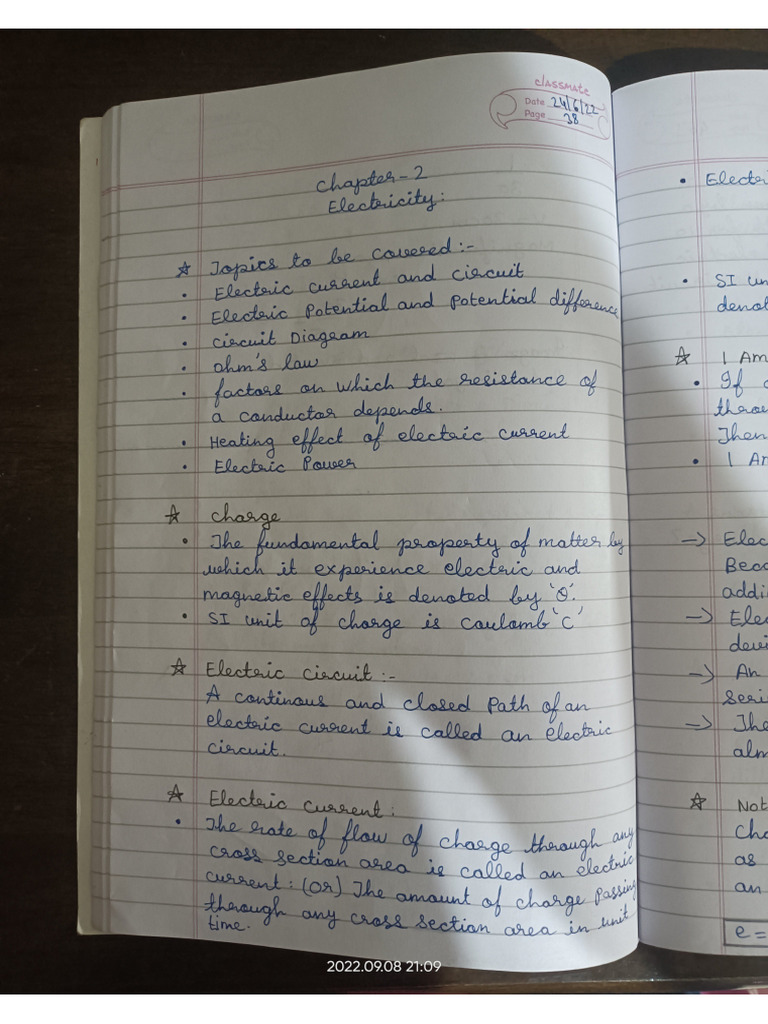 classmate
Date 24/6/22
Page 38
Chapter-2
Electricity:
☆ Topics to be covered:-
• Electric current and circuit
• Electric Potential and potential difference
• circuit Diagram
• ohm's law
• factors on which the resistance of
a conductor depends.
• Heating effect of electric current
• Electric Power
☆ charge
• The fundamental property of matter by
which it experience electric and
magnetic effects is denoted by 'Q'.
• SI unit of charge is coulomb 'C'
☆ Electric circuit:-
A continous and closed Path of an
electric current is called an electric
circuit.
☆ Electric current:
• The rate of flow of charge through any
cross section area is called an electric
current: (or) The amount of charge passing
through any cross section area in unit
time.
• Electri
• SI un
denot
☆ 1 Am
• If
throu
Then
• 1 Am
→ Elec
Beca
addi
→ Elec
devi
→ An
Seri
→ The
alm
☆ Not
Cha
as
an
e=
2022.09.08 21:09